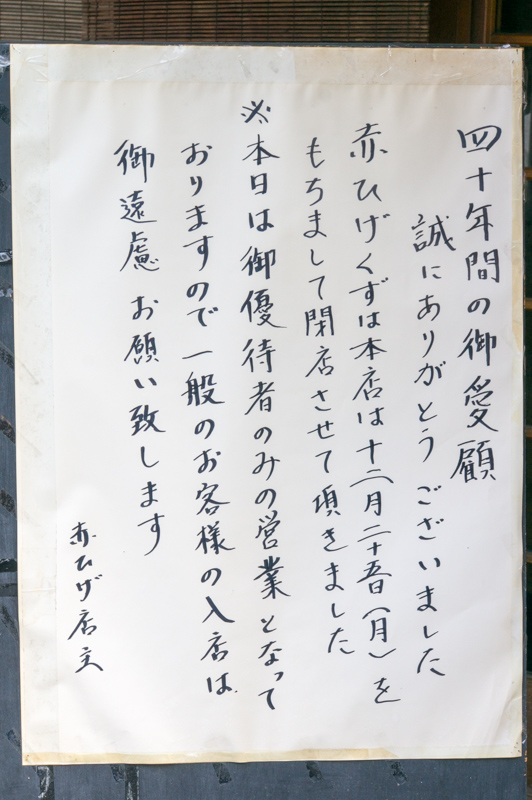 四十年間の御愛顧
誠にありがとうございました
赤ひげくずは本店は十二月二十五日（月）を
もちまして閉店させて頂きました
※本日は御優待者のみの営業となって
おりますので一般のお客様の入店は
御遠慮お願い致します
赤ひげ店主